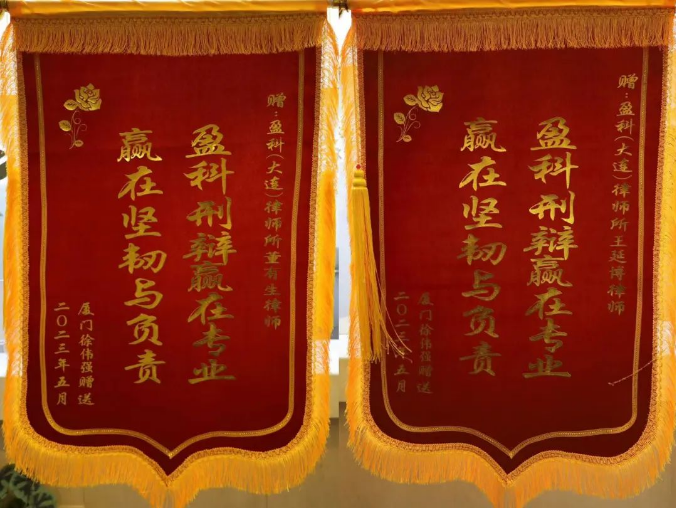 赠：盈科(大连)律师所董有生律师
盈科刑辩赢在专业
赢在坚韧与负责
厦门徐伟强赠送
二〇二三年五月
赠：盈科(大连)律师所王延博律师
盈科刑辩赢在专业
赢在坚韧与负责
厦门徐伟强赠送
二〇二三年五月